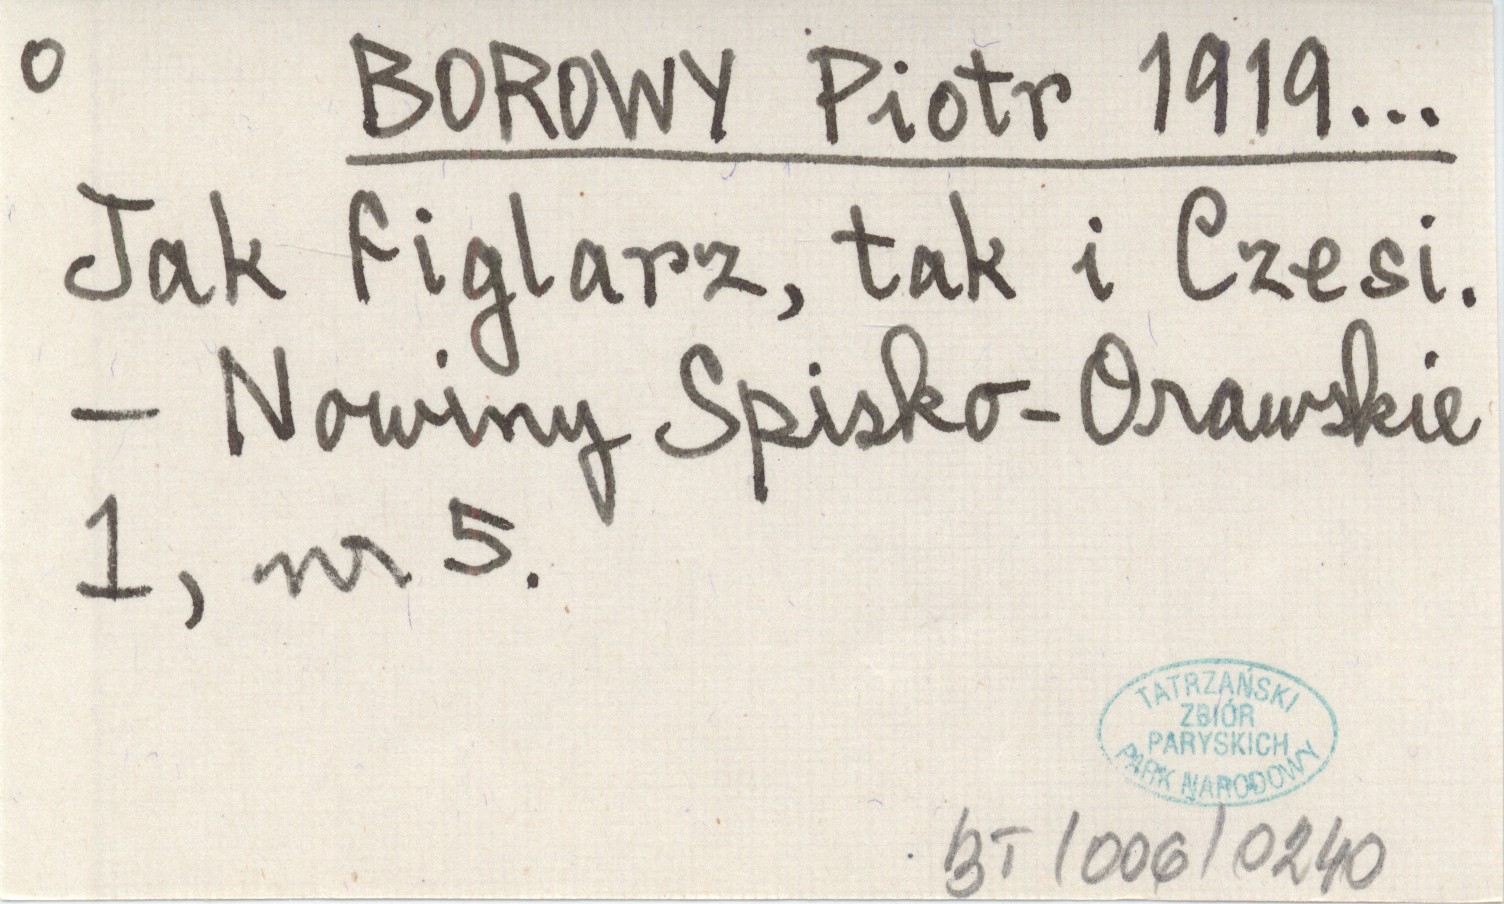 o BOROWY Piotr 1919...
Jak figlarz, tak i Czesi.
– Nowiny Spisko-Orawskie
1, nr 5.
TATRZAŃSKI
ZBIÓR
PARYSKICH
PARK NARODOWY
BT/006/0240